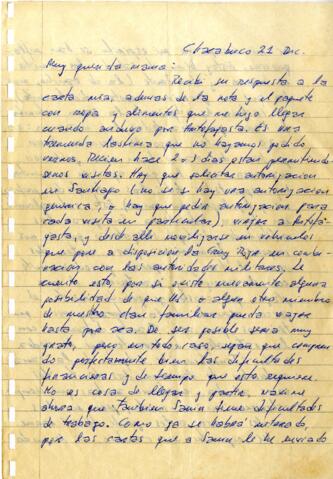 Chacabuco 21 Dic.
Muy querida mamá:
Recibí su respuesta a la
carta mía, además de la nota y el paquete
con ropa y alimentos que me hizo llegar
cuando anduvo por Antofagasta. Es una
tremenda lástima que no hayamos podido
vernos. Recien hace 2 o 3 días están permitiendo
visitas. Hay que solicitar autorización
en Santiago (no sé si hay una autorización
genérica, o hay que pedir autorización para
cada visita en particular), viajar a Antofa-
gasta, y desde allí movilizarse en vehículos
que pone a disposición la Cruz Roja en combi-
nación con las autoridades militares. Le
cuento esto, por si existe nuevamente alguna
posibilidad de que Ud. o algún otro miembro
de nuestro clan familiar pueda viajar
hasta por acá. De ser posible sería muy
grato, pero en todo caso, sepan que compren-
do perfectamente bien las dificultades
financieras y de tiempo que esto requiere.
No es cosa de llegar y partir, máxime
ahora que también tiene dificultades
de trabajo. Como ya se habrá enterado,
por las cartas que a le he enviado